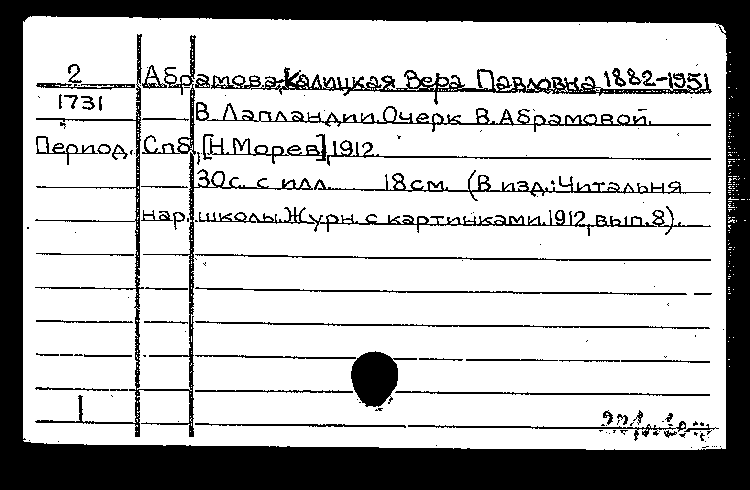 2 Абрамова-Калицкая Вера Павловна, 1882-1951
1731 В Лапландии. Очерк В. Абрамовой.
Период. Спб., [Н. Морев], 1912.
30с. с илл. 18см. (В изд.: Читальня
нар. школы. Журн. с картинками. 1912, вып. 8).
1